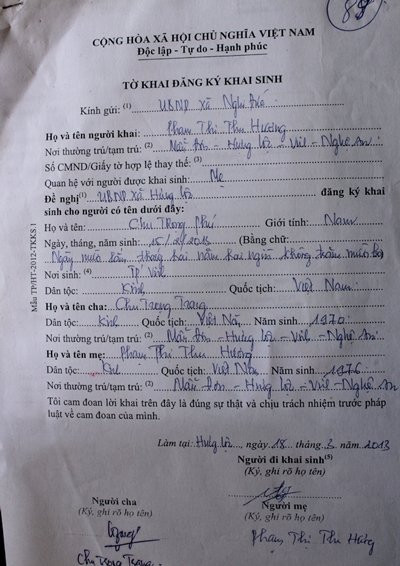 89
CỘNG HÒA XÃ HỘI CHỦ NGHĨA VIỆT NAM
Độc lập - Tự do - Hạnh phúc
TỜ KHAI ĐĂNG KÝ KHAI SINH
Kính gửi: (1) UBND xã
Họ và tên người khai: Phạm Thị Thu Hương
Nơi thường trú/tạm trú: (2) - Hưng Lộc - Vinh - Nghệ An
Số CMND/Giấy tờ hợp lệ thay thế: (3)
Quan hệ với người được khai sinh: Mẹ
Đề nghị(1) UBND xã Hưng Lộc đăng ký khai
sinh cho người có tên dưới đây:
Họ và tên: Chu Trọng Phú Giới tính: Nam
Ngày, tháng, năm sinh: 15/2/2013 (Bằng chữ:
Ngày mười lăm, tháng hai năm hai nghìn không trăm mười ba
Nơi sinh: (4) TP Vinh
Dân tộc: Kinh Quốc tịch: Việt Nam
Họ và tên cha: Chu Trọng Trang
Dân tộc: Kinh Quốc tịch: Việt Nam Năm sinh 1970
Nơi thường trú/tạm trú: (2) - Hưng Lộc - Vinh - Nghệ An
Họ và tên mẹ: Phạm Thị Thu Hương
Dân tộc: Kinh Quốc tịch: Việt Nam Năm sinh 1976
Nơi thường trú/tạm trú: (2) - Hưng Lộc - Vinh - Nghệ An
Tôi cam đoan lời khai trên đây là đúng sự thật và chịu trách nhiệm trước pháp
luật về cam đoan của mình.
Làm tại: Hưng Lộc, ngày 18 tháng 3 năm 2013
Người đi khai sinh(5)
(Ký, ghi rõ họ tên)
Người cha Người mẹ
(Ký, ghi rõ họ tên) (Ký, ghi rõ họ tên)
Chu Trọng Trang Phạm Thị Thu Hương
Mẫu TP/HT-2012-TKKS.1